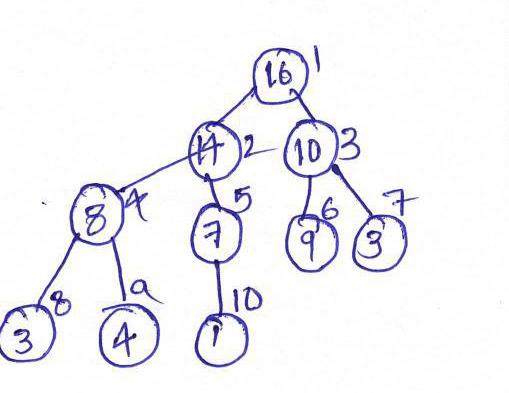 16 1
14 2 10 3
8 4 7 5 9 6 3 7
3 8 4 9 1 10